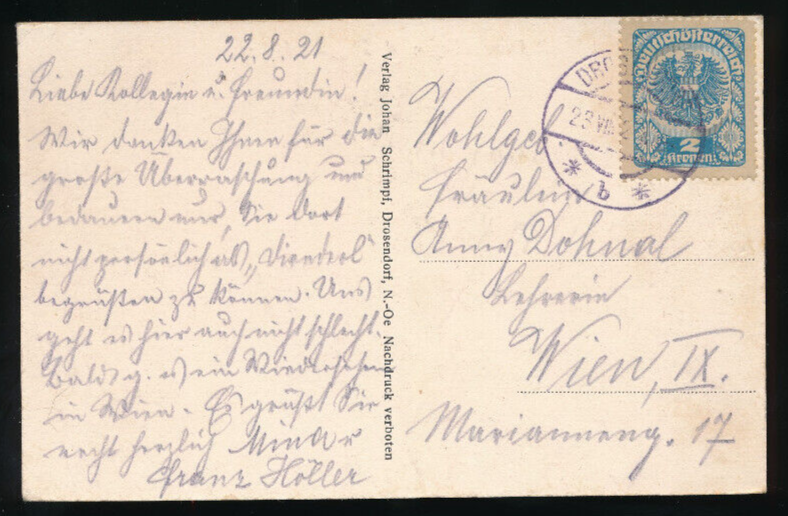 22.8.21
Liebe Kollegin u. Freundin!
Wir danken Ihnen für die
große Überraschung und
bedauern nur, Sie dort
nicht persönlich als „Dirnderl“
begrüßen zu können. Uns
geht es hier auch nicht schlecht.
Bald g. es ein Wiedersehen
in Wien. Es grüßt Sie
recht herzlich Mina u
Franz Höller
Verlag Johan Schrimpf, Drosendorf, N.-Oe Nachdruck verboten
Deutschösterreich
2
Kronen
DRO
23 VIII
* b *
Wohlgeb.
Fräulein
Anny Dohnal
Lehrerin
Wien, IX.
Marianneng. 17